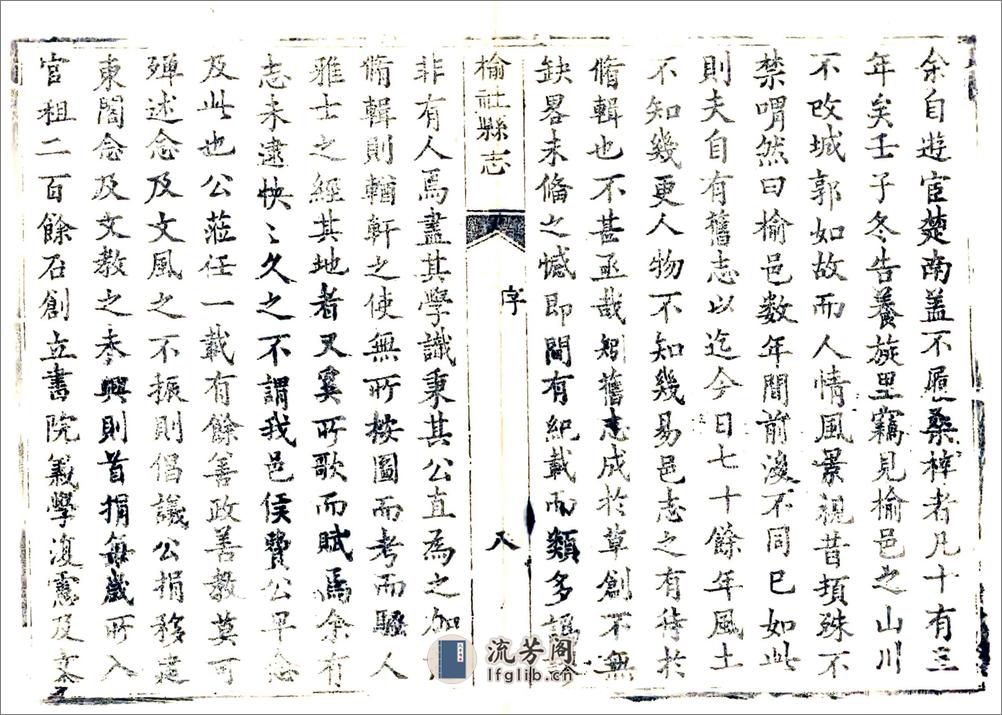 余自遊宦楚南盖不履桑梓者凡十有三
年矣壬子冬告養旋里竊見榆邑之山川
不改城郭如故而人情風景視昔頓殊不
禁喟然曰榆邑数年間前後不同已如此
則夫自有舊志以迄今日七十餘年風土
不知幾更人物不知幾易邑志之有待於
脩輯也不甚亟哉矧舊志成於草創不無
缺畧未俻之憾即間有紀載而類多
榆社縣志
序
八
非有人焉盡其學識秉其公直為之加
脩輯則輶軒之使無所按圖而考而騷人
雅士之經其地者又奚所歌而賦焉余有
志未逮怏〻久之不謂我邑侯費公早念
及此也公蒞任一載有餘善政善教莫可
殫述念及文風之不振則倡議公捐移建
東閣念及文教之未興則首捐每歲所入
官租二百餘石創立書院義學復慮及文
流芳阁
lfglib.cn